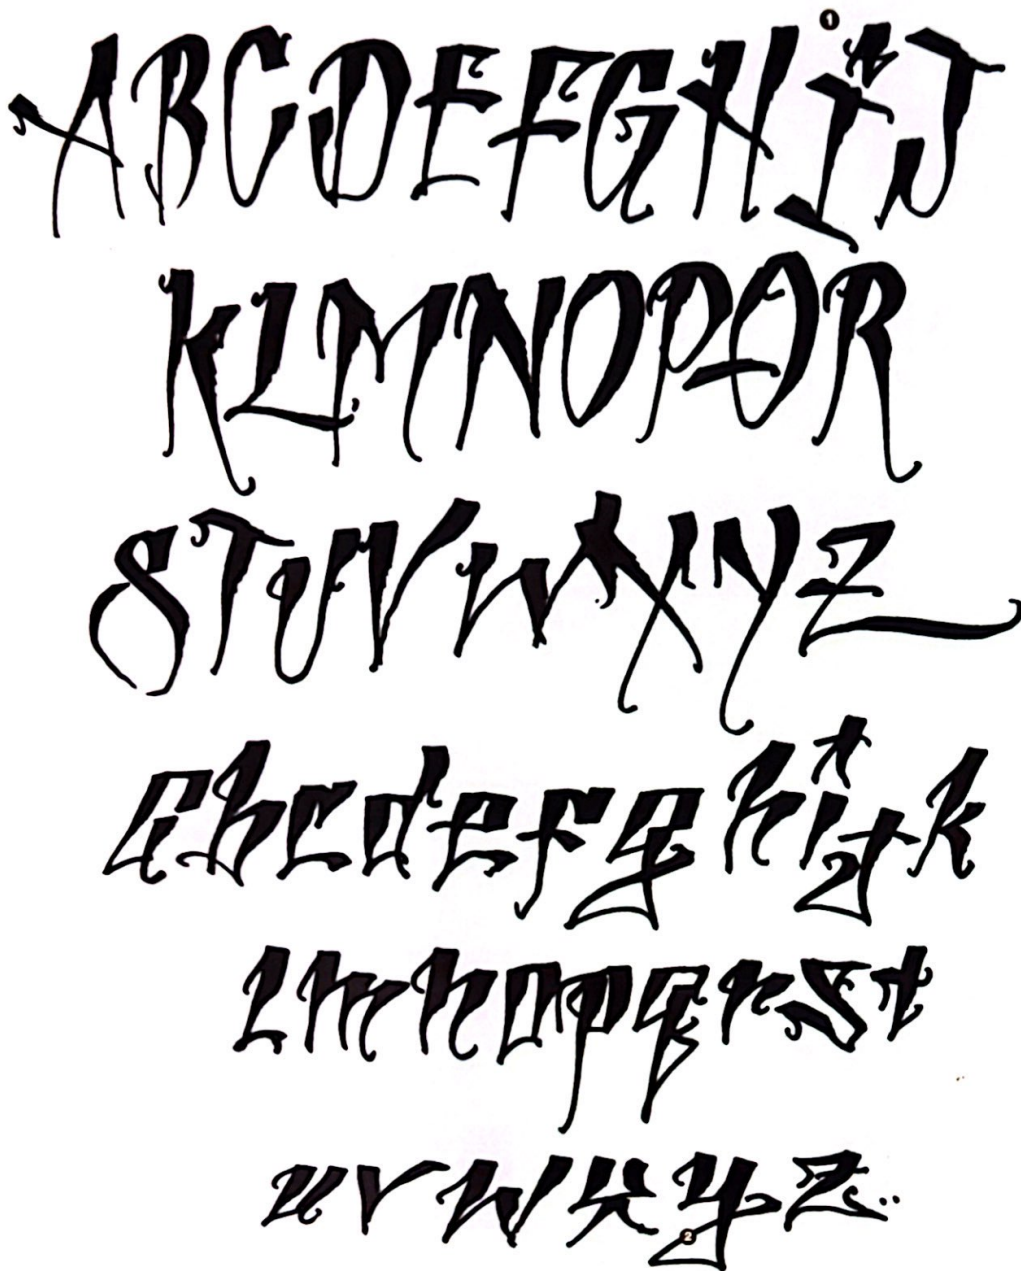 1
ABCDEFGHIJ
KLMNOPQR
STUVWXYZ
abcdefghijk
lmnopqrst
uvwxyz..
2